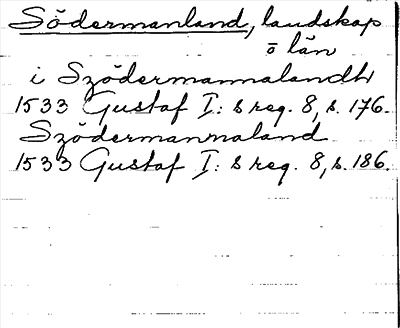 Södermanland, landskap
o län
i Szödermannalandh
1533 Gustaf I:s reg. 8, s. 176.
Szödermannaland
1533 Gustaf I:s reg. 8, s. 186.